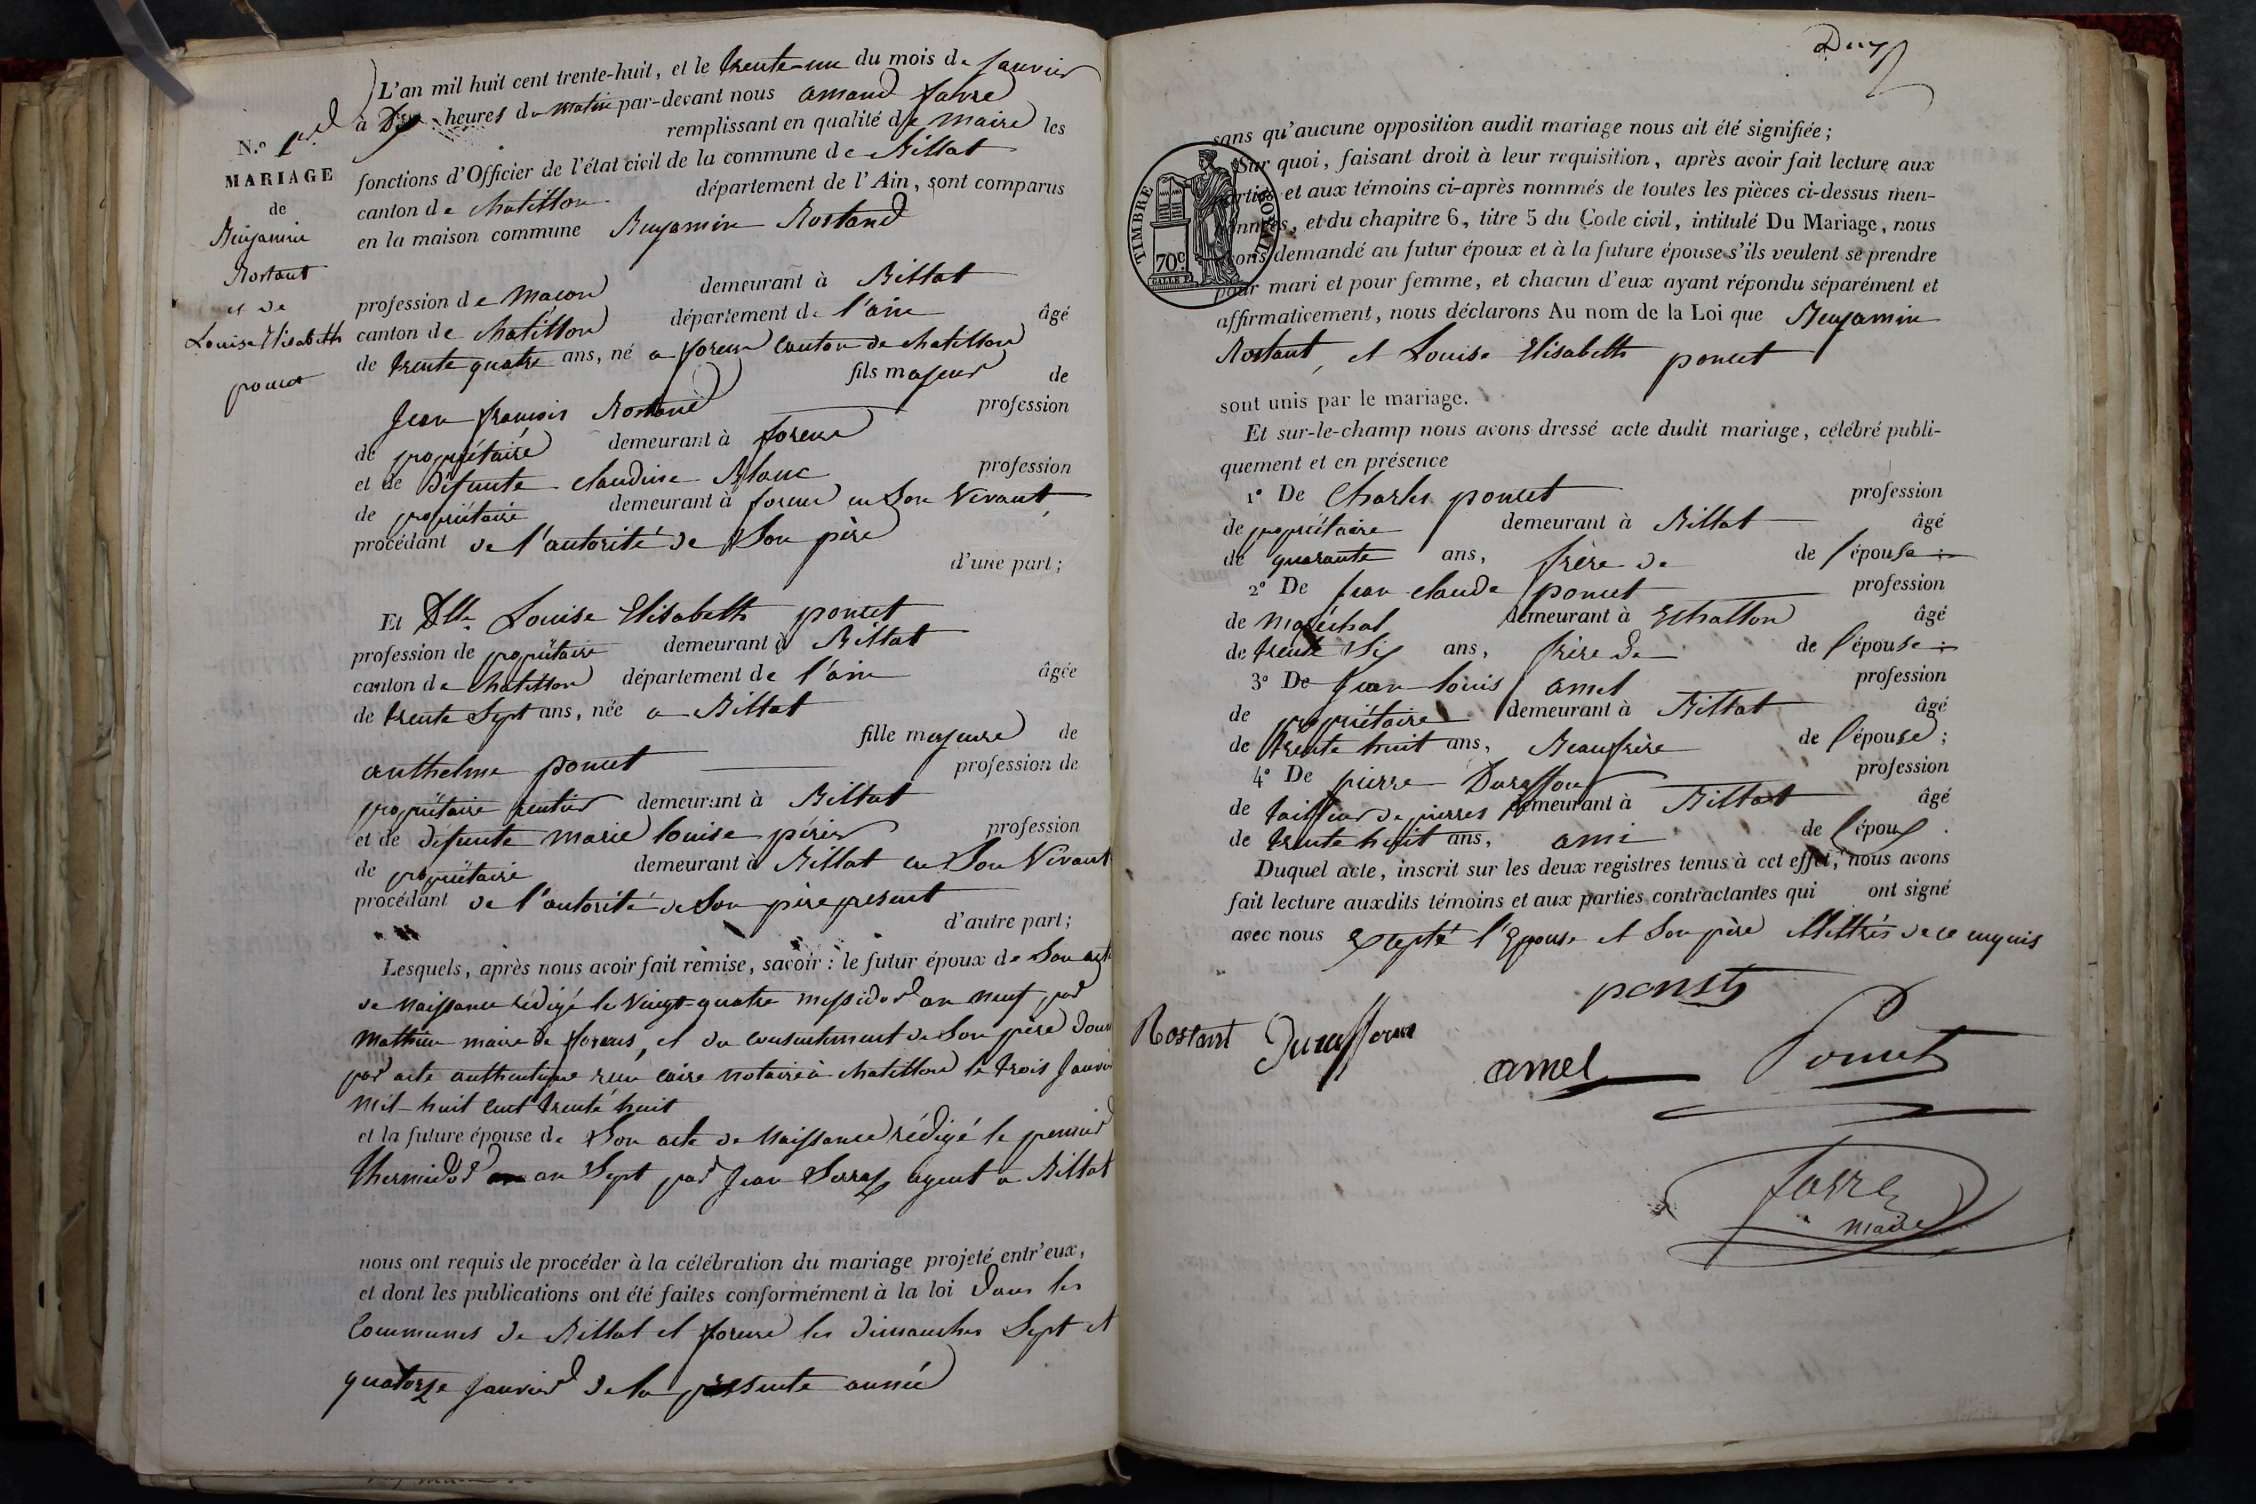 L'an mil huit cent trente-huit, et le trente-un du mois de janvier
à heures du matin par-devant nous amand favre
remplissant en qualité de maire les
N.º 1er
MARIAGE
de
Benjamin
Rostant
et de
Louise Elisabeth
poncet
fonctions d'Officier de l'état civil de la commune de Billat
canton de chatillon département de l'Ain, sont comparus
en la maison commune Benjamin Rostand
profession de Maçon demeurant à Billat
canton de chatillon département de l'ain âgé
de trente quatre ans, né a forens canton de chatillon
fils majeur de
Jean françois Rostand profession
de propriétaire demeurant à forens
et de défunte claudine Blanc profession
de propriétaire demeurant à forens en Son Vivant,
procédant de l'autorité de Son père
d'une part;
Et Dlle Louise Elisabeth poncet
profession de propriétaire demeurant à Billat
canton de chatillon département de l'ain âgée
de trente Sept ans, née a Billat
fille majeure de
anthelme poncet profession de
propriétaire rentier demeurant à Billat
et de défunte marie louise périer profession
de propriétaire demeurant à Billat en Son Vivant
procédant de l'autorité de Son père présent
d'autre part;
Lesquels, après nous avoir fait remise, savoir: le futur époux de Son acte
de Naissance rédigé le Vingt-quatre messidor an neuf par
Mathieu maire de forens, et du consentement de Son père donné
par acte authentique reçu caire notaire à chatillon le trois Janvier
mil huit cent trente huit
et la future épouse de Son acte de Naissance rédigé le premier
thermidor an Sept par Jean Serraz agent a Billat
nous ont requis de procéder à la célébration du mariage projeté entr'eux,
et dont les publications ont été faites conformément à la loi dans les
Communes de Billat et forens les dimanches Sept et
quatorze janvier de la présente année
sans qu'aucune opposition audit mariage nous ait été signifiée;
Sur quoi, faisant droit à leur requisition, après avoir fait lecture aux
parties et aux témoins ci-après nommés de toutes les pièces ci-dessus men-
tionnées, et du chapitre 6, titre 5 du Code civil, intitulé Du Mariage, nous
avons demandé au futur époux et à la future épouse s'ils veulent se prendre
pour mari et pour femme, et chacun d'eux ayant répondu séparément et
affirmativement, nous déclarons Au nom de la Loi que Benjamin
Rostant, et Louise Elisabeth poncet
TIMBRE ROYAL
70c
sont unis par le mariage.
Et sur-le-champ nous avons dressé acte dudit mariage, célébré publi-
quement et en présence
1º De Charles poncet profession
de propriétaire demeurant à Billat âgé
de quarante ans, frère de de l'épouse;
2º De Jean claude poncet profession
de Maréchal demeurant à Echallon âgé
de trente Six ans, frère de de l'épouse;
3º De Jean louis amel profession
de propriétaire demeurant à Billat âgé
de trente huit ans, Beaufrère de l'épouse;
4º De pierre Duraffour profession
de tailleur de pierres demeurant à Billat âgé
de trente huit ans, ami de l'époux.
Duquel acte, inscrit sur les deux registres tenus à cet effet, nous avons
fait lecture auxdits témoins et aux parties contractantes qui ont signé
avec nous excepté l'Epouse et Son père illettrés de ce enquis
ponset
Rostant Duraffour
amel Poncet
favre
maire